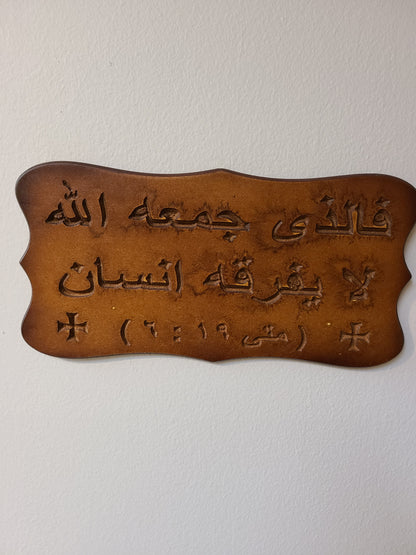 فالذى جمعه الله
لا يفرقه انسان
(متى ١٩ : ٦)